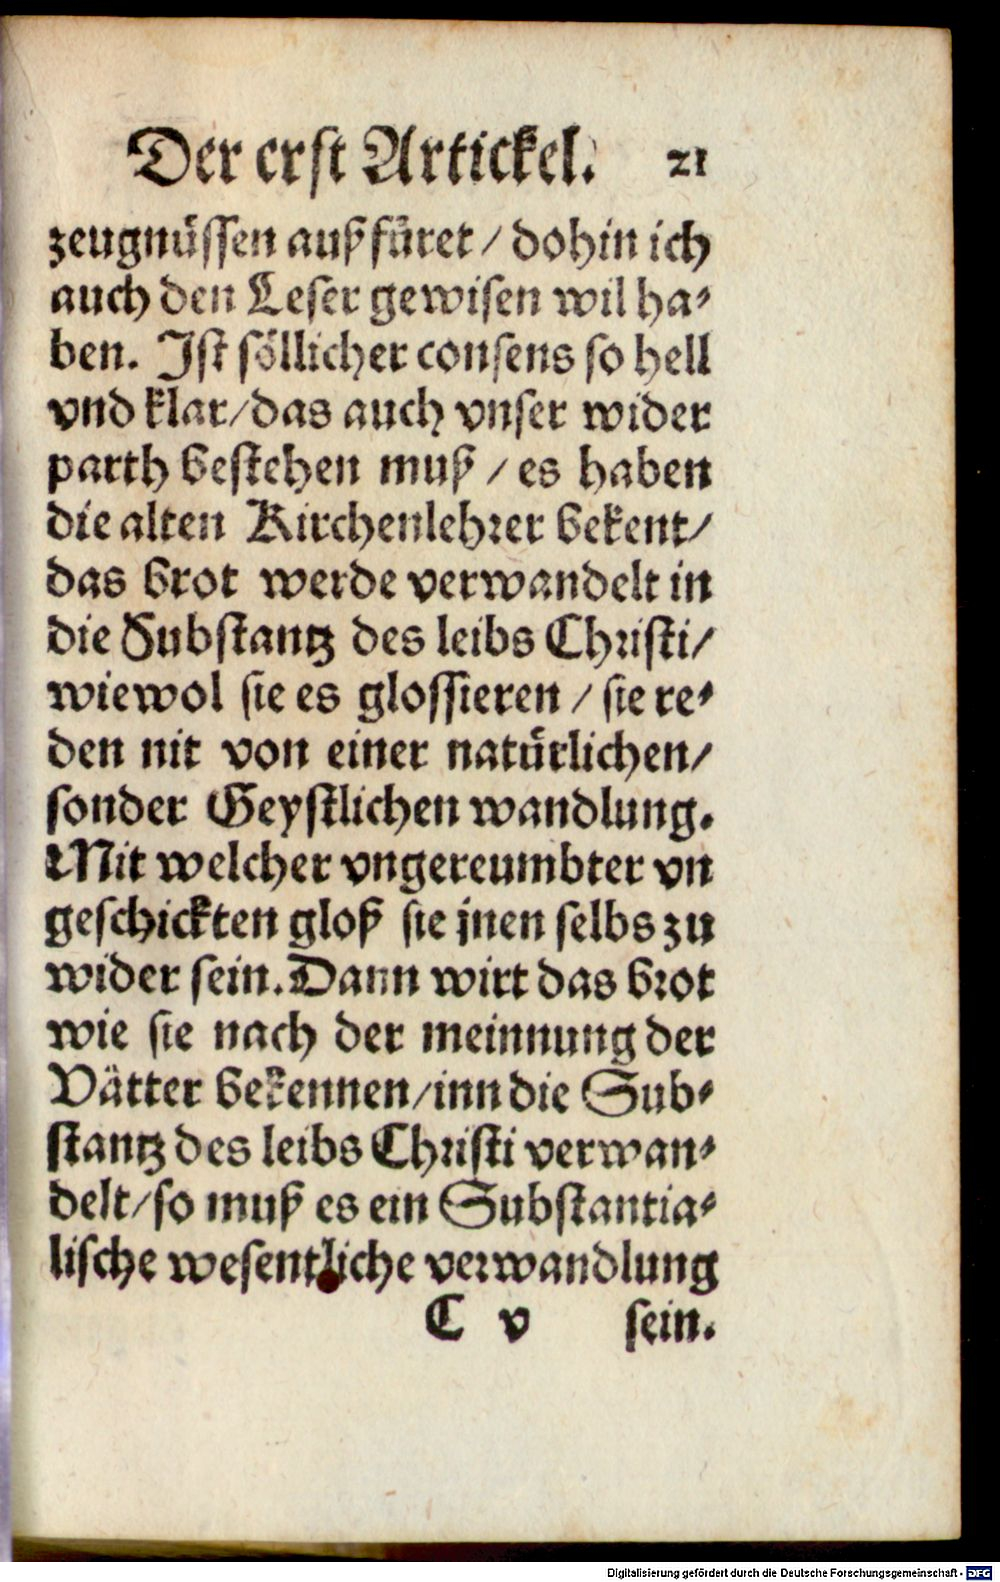 Der erst Artickel. 21
zeugnüssen außfüret / dohin ich
auch den Leser gewisen wil ha-
ben. Ist söllicher consens so hell
vnd klar/das auch vnser wider
parth bestehen muß / es haben
die alten Kirchenlehrer bekent/
das brot werde verwandelt in
die Substantz des leibs Christi/
wiewol sie es glossieren / sie re-
den nit von einer natürlichen/
sonder Geystlichen wandlung.
Mit welcher vngereumbter vn
geschickten gloß sie jnen selbs zu
wider sein. Dann wirt das brot
wie sie nach der meinnung der
Vätter bekennen/inn die Sub-
stantz des leibs Christi verwan-
delt/so muß es ein Substantia-
lische wesentliche verwandlung
C v sein.
Digitalisierung gefördert durch die Deutsche Forschungsgemeinschaft - DFG